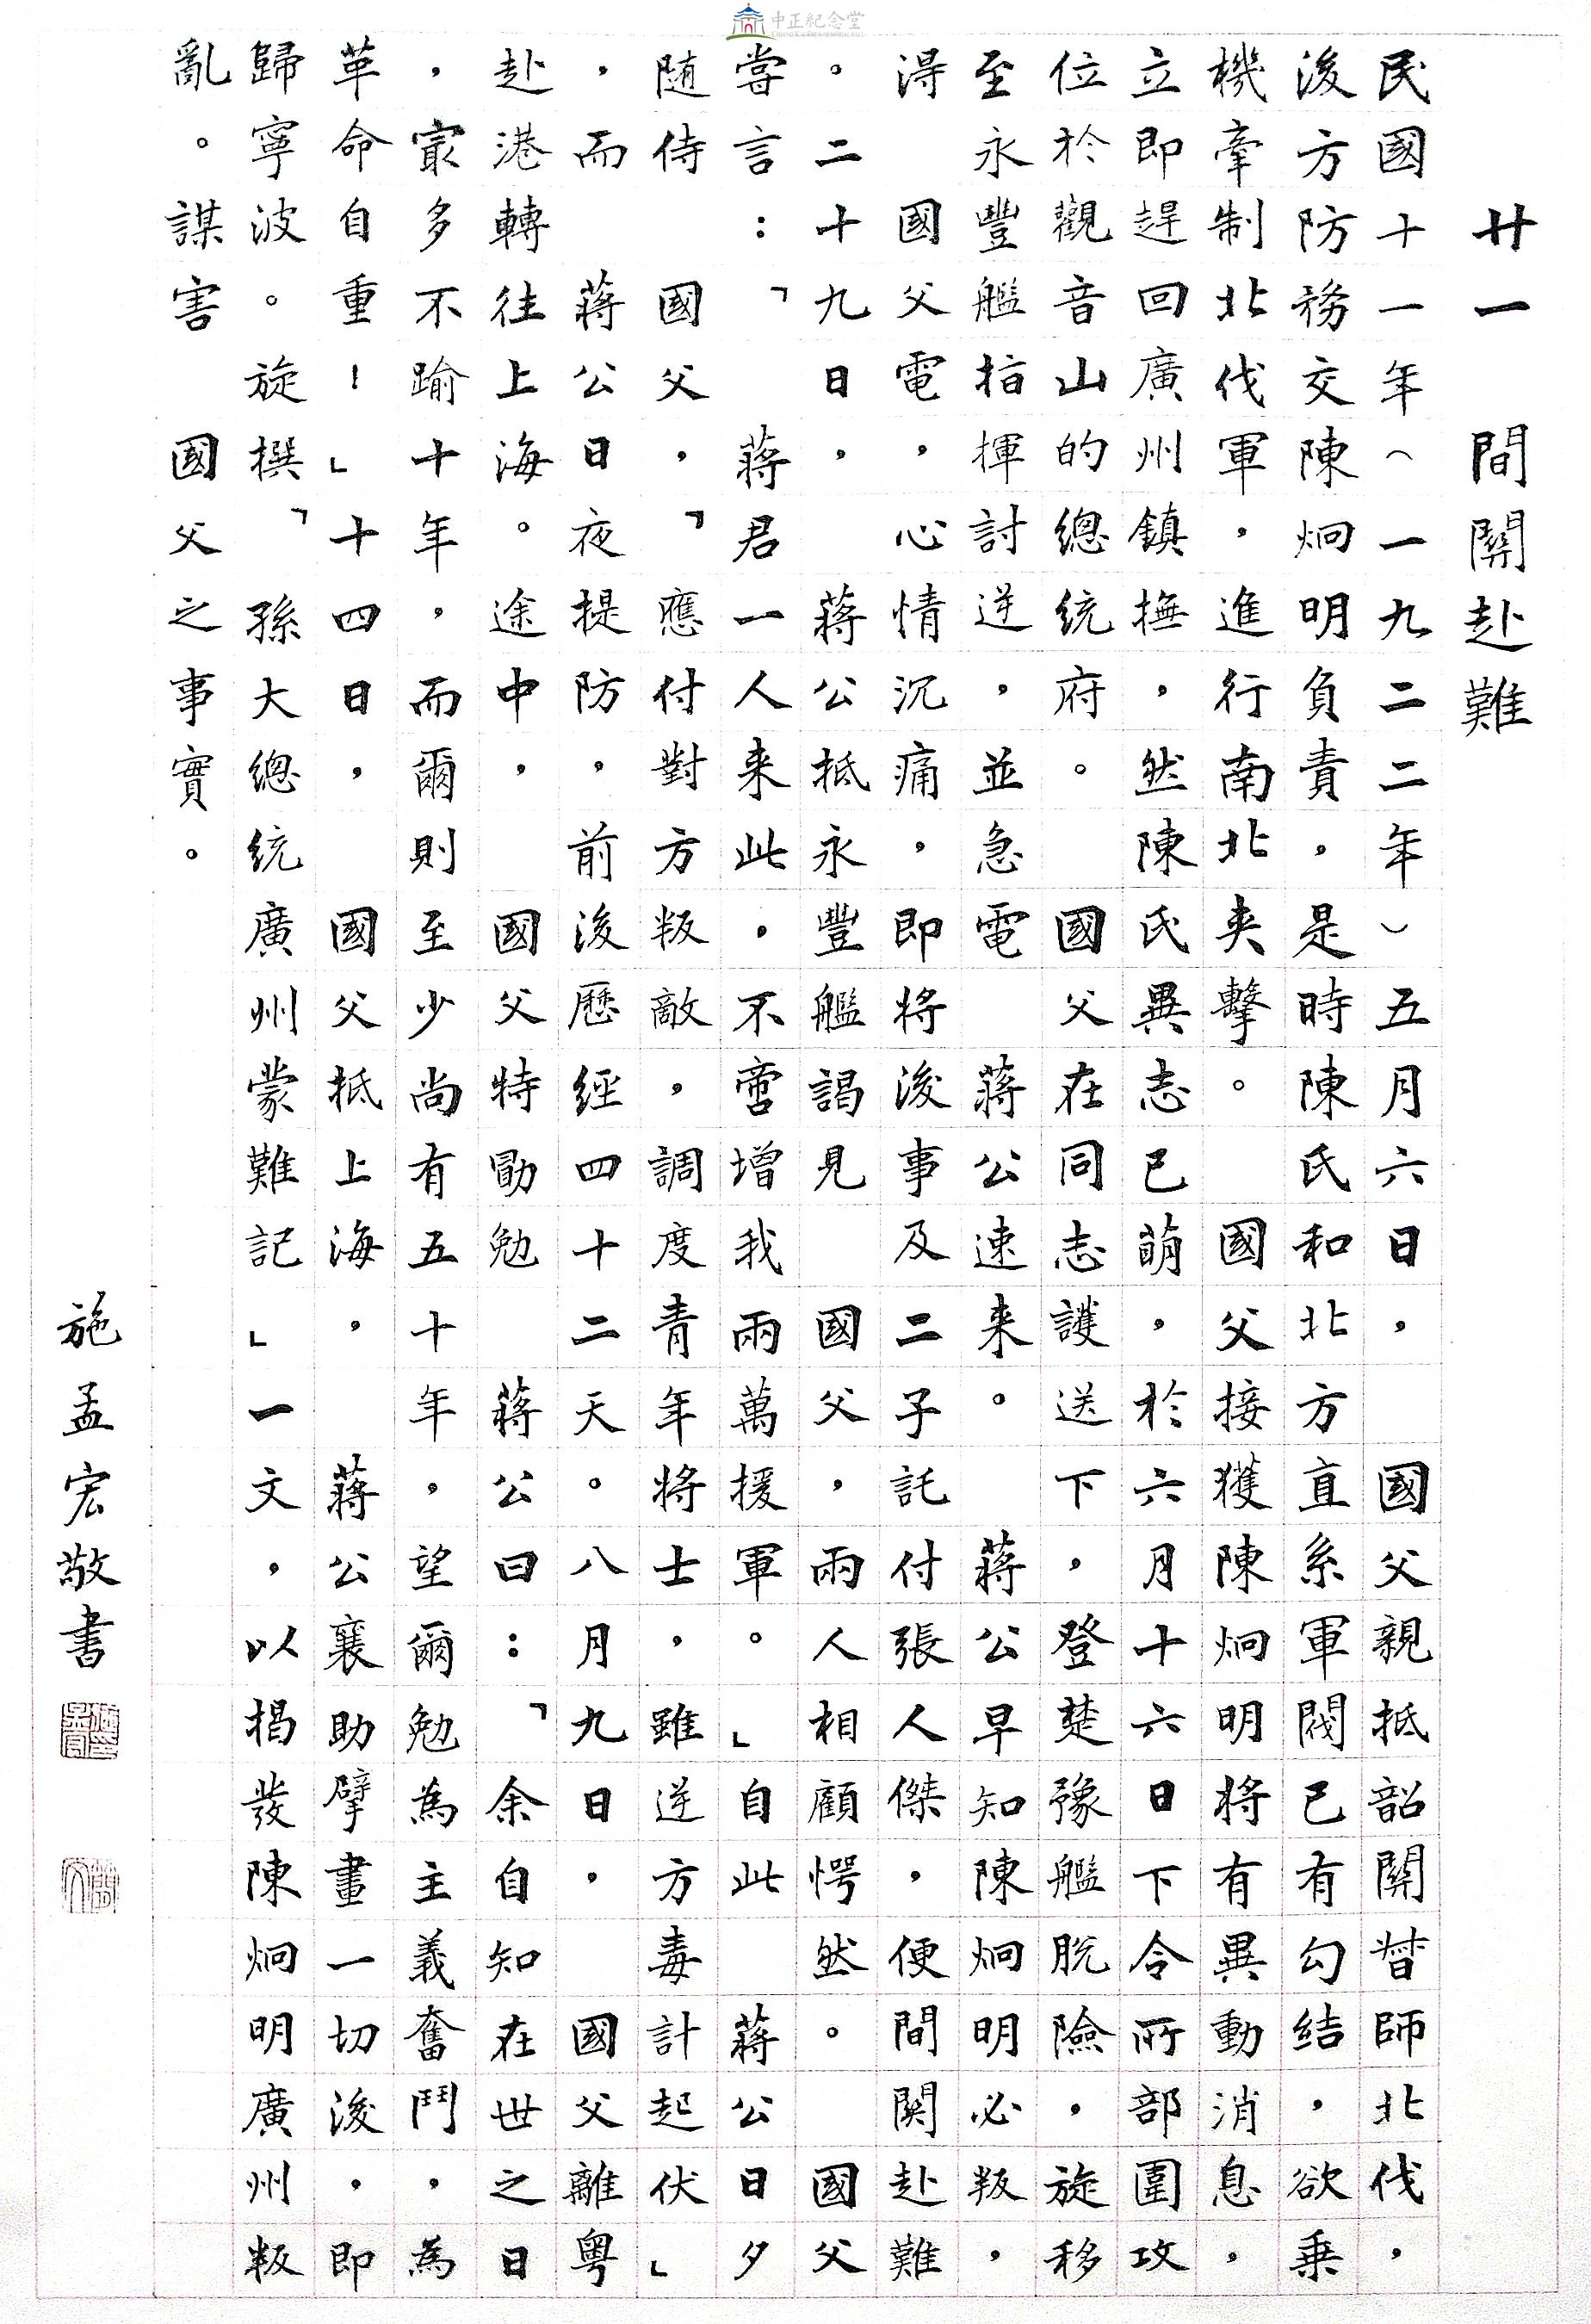 中正紀念堂
廿一 間關赴難
民國十一年(一九二二年)五月六日, 國父親抵韶關督師北伐,
後方防務交陳炯明負責,是時陳氏和北方直系軍閥已有勾結,欲乘
機牽制北伐軍,進行南北夾擊。 國父接獲陳炯明將有異動消息,
立即趕回廣州鎮撫,然陳氏異志已萌,於六月十六日下令所部圍攻
位於觀音山的總統府。 國父在同志護送下,登楚豫艦脫險,旋移
至永豐艦指揮討逆,並急電 蔣公速來。 蔣公早知陳炯明必叛,
得 國父電,心情沉痛,即將後事及二子託付張人傑,便間関赴難
。二十九日, 蔣公抵永豐艦謁見 國父,兩人相顧愕然。 國父
嘗言:「 蔣君一人來此,不啻增我兩萬援軍。」自此 蔣公日夕
隨侍 國父,「應付對方叛敵,調度青年將士,雖逆方毒計起伏」
,而 蔣公日夜提防,前後歷經四十二天。八月九日, 國父離粵
赴港轉往上海。途中, 國父特勖勉 蔣公曰:「余自知在世之日
,最多不踰十年,而爾則至少尚有五十年,望爾勉為主義奮鬥,為
革命自重!」十四日, 國父抵上海, 蔣公襄助擘畫一切後,即
歸寧波。旋撰「 孫大總統廣州蒙難記」一文,以揭發陳炯明廣州叛
亂。謀害 國父之事實。
施孟宏敬書